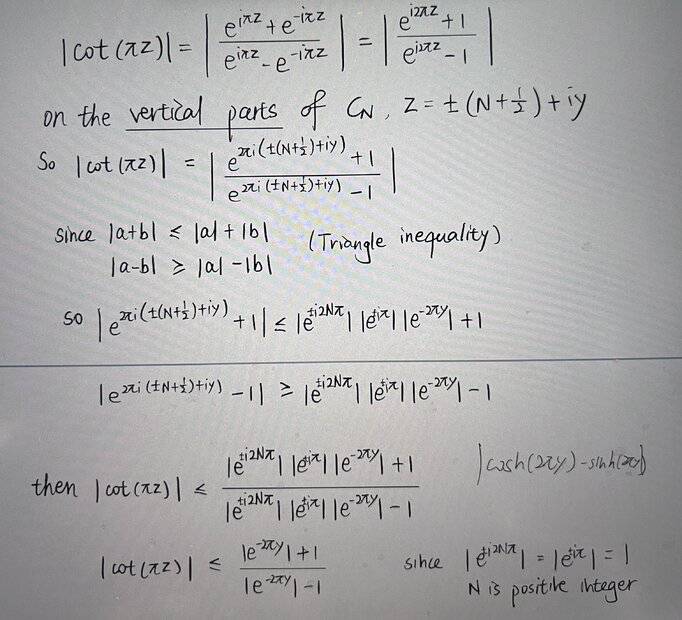 |cot(πz)| = | (e^{iπz} + e^{-iπz}) / (e^{iπz} - e^{-iπz}) | = | (e^{i2πz} + 1) / (e^{i2πz} - 1) |
on the vertical parts of C_N, z = ±(N+½)+iy
So |cot(πz)| = | (e^{2πi(±(N+½)+iy)} + 1) / (e^{2πi(±N+½)+iy)} - 1) |
since |a+b| ≤ |a| + |b| (Triangle inequality)
|a-b| ≥ |a| - |b|
so | e^{2πi(±(N+½)+iy)} + 1 | ≤ |e^{±i2Nπ}| |e^{±iπ}| |e^{-2πy}| + 1
|e^{2πi(±N+½)+iy)} - 1| ≥ |e^{±i2Nπ}| |e^{±iπ}| |e^{-2πy}| - 1
then |cot(πz)| ≤ (|e^{±i2Nπ}| |e^{±iπ}| |e^{-2πy}| + 1) / (|e^{±i2Nπ}| |e^{±iπ}| |e^{-2πy}| - 1) |cosh(2πy) - sinh(2πy)|
|cot(πz)| ≤ (|e^{-2πy}| + 1) / (|e^{-2πy}| - 1) since |e^{±i2Nπ}| = |e^{±iπ}| = 1
N is positive integer